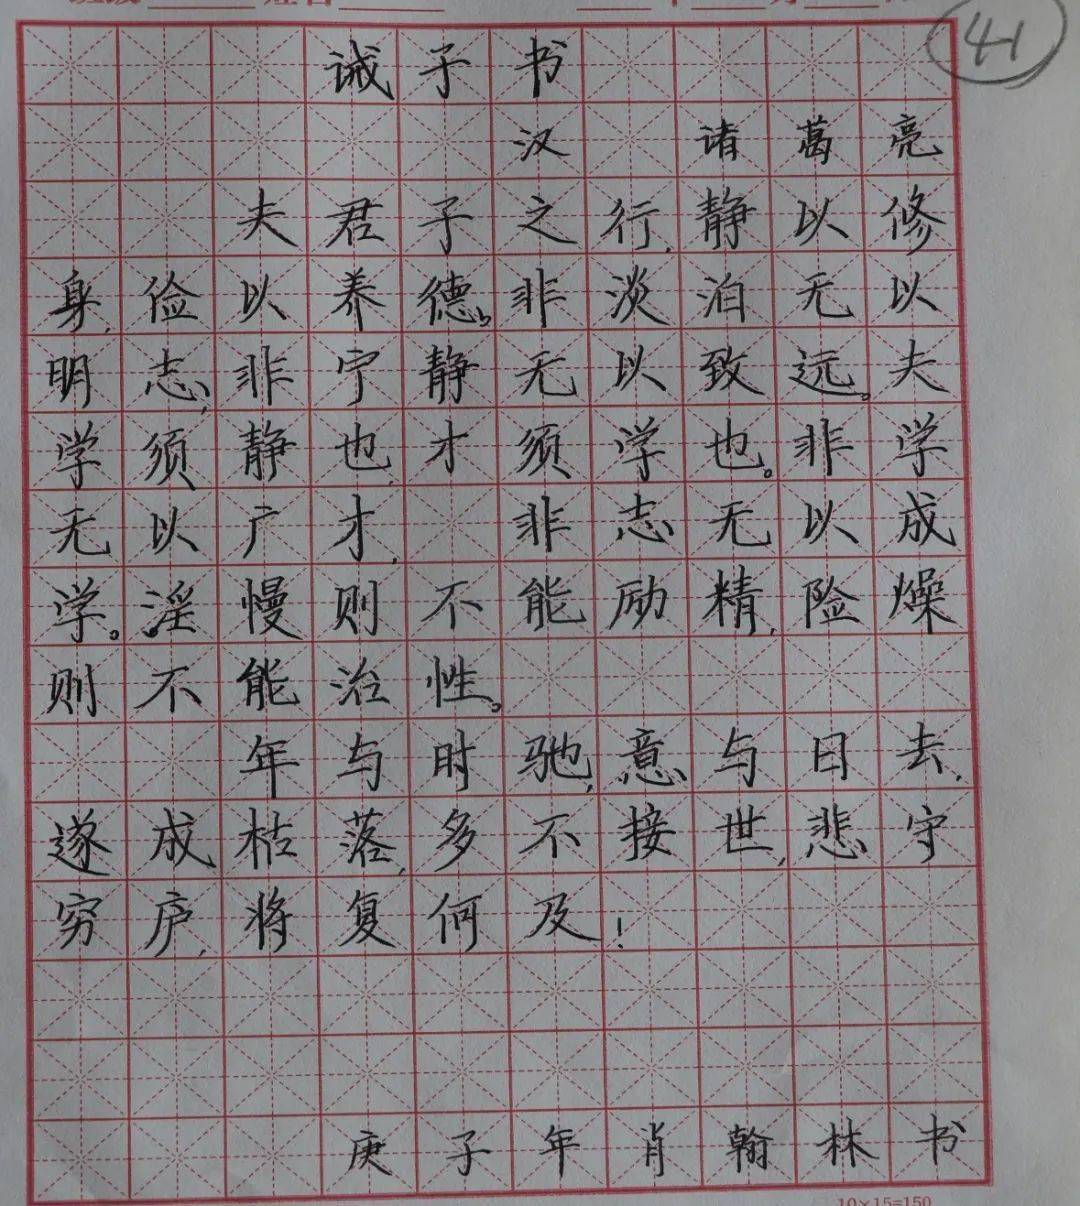 41
诫子书
汉 诸葛亮
夫君子之行,静以修
身,俭以养德。非淡泊无以
明志,非宁静无以致远。夫
学须静也,才须学也。非学
无以广才, 非志无以成
学。淫慢则不能励精,险燥
则不能治性。
年与时驰,意与日去,
遂成枯落,多不接世,悲守
穷庐,将复何及!
庚子年肖翰林书
10×15=150